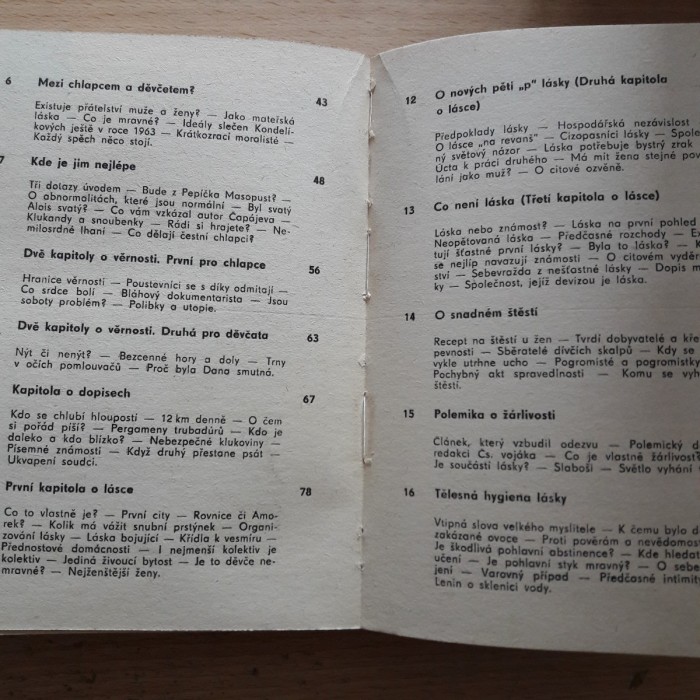 6 Mezi chlapcem a děvčetem? 43
Existuje přátelství muže a ženy? — Jako mateřská
láska — Co je mravné? — Ideály slečen Kondelí-
kových ještě v roce 1963 — Krátkozrací moralisté —
Každý spěch něco stojí.
7 Kde je jim nejlépe 48
Tři dotazy úvodem — Bude z Pepíčka Masopust? —
O abnormalitách, které jsou normální — Byl svatý
Alais svatý? — Co vám vzkázal autor Čapájeva —
Klukandy a snoubenky — Rádi si hrajete? — Ne-
milosrdné lhaní — Co dělají čestní chlapci?
Dvě kapitoly o věrnosti. První pro chlapce 56
Hranice věrnosti — Poustevníci se s díky odmítají —
Co srdce bolí — Bláhový dokumentarista — Jsou
soboty problém? — Polibky a utopie.
Dvě kapitoly o věrnosti. Druhá pro děvčata 63
Nýt či nenýt? — Bezcenné hory a doly — Trny
v očích pomlouvačů — Proč byla Dana smutná.
Kapitola o dopisech 67
Kdo se chlubí hloupostí — 12 km denně — O čem
si pořád píší? — Pergameny trubadúrů — Kdo je
daleko a kdo blízko? — Nebezpečné klukoviny —
Písemné známosti — Když druhý přestane psát —
Ukvapení soudci.
První kapitola o lásce 78
Co to vlastně je? — První city — Rovnice či Amo-
rek? — Kolik má vážit snubní prstýnek — Organi-
zování lásky — Láska bojující — Křídla k vesmíru —
Přednostové domácnosti — I nejmenší kolektiv je
kolektiv — Jediná živoucí bytost — Je to děvče ne-
mravné? — Nejženštější ženy.
12 O nových pěti „p" lásky (Druhá kapitola
o lásce)
Předpoklady lásky — Hospodářská nezávislost —
O lásce „na revanš" — Cizopasníci lásky — Spole
ný světový názor — Láska potřebuje bystrý zrak
Úcta k práci druhého — Má mít žena stejné po
lání jako muž? — O citové ozvěně.
13 Co není láska (Třetí kapitola o lásce)
Láska nebo známost? — Láska na první pohled
Neopětovaná láska — Předčasné rozchody — E
tují šťastné první lásky? — Byla to láska? — K
se nejlíp navazují známosti — O citovém vyděr
ství — Sebevražda z nešťastné lásky — Dopis m
ky — Společnost, jejíž devizou je láska.
14 O snadném štěstí
Recept na štěstí u žen — Tvrdí dobyvatelé a kře
pevnosti — Sběratelé dívčích skalpů — Kdy se
vykle utrhne ucho — Pogromisté a pogromistky
Pochybný akt spravedlnosti — Komu se vyh
štěstí.
15 Polemika o žárlivosti
Článek, který vzbudil odezvu — Polemický d
redakci Čs. vojáka — Co je vlastně žárlivost?
Je součástí lásky? — Slaboši — Světlo vyhání
16 Tělesná hygiena lásky
Vtipná slova velkého myslitele — K čemu bylo d
zakázané ovoce — Proti pověrám a nevědomos
Je škodlivá pohlavní abstinence? — Kde hledat
učení — Je pohlavní styk mravný? — O sebe
jení — Varovný případ — Předčasné intimit
Lenin o sklenici vody.